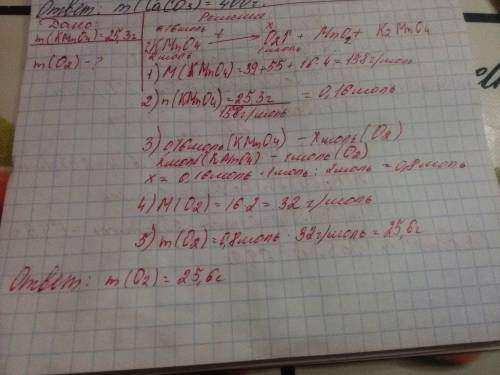 Ответ: m(CaCO3) = 400г.
Дано: Решение
m(KMnO4)=25,3г
m(O2) - ?
0,16моль t x
2KMnO4 → O2↑ + MnO2 + K2MnO4
2моль 1моль
1) M(KMnO4) = 39+55+16·4 = 158г/моль
2) n(KMnO4) = 25,3г / 158г/моль = 0,16моль
3) 0,16моль(KMnO4) - x моль(O2)
моль(KMnO4) - 1моль(O2)
x = 0,16моль · 1моль : 2моль = 0,8моль
4) M(O2) = 16·2 = 32 г/моль
5) m(O2) = 0,8моль · 32г/моль = 25,6г
Ответ: m(O2) = 25,6г